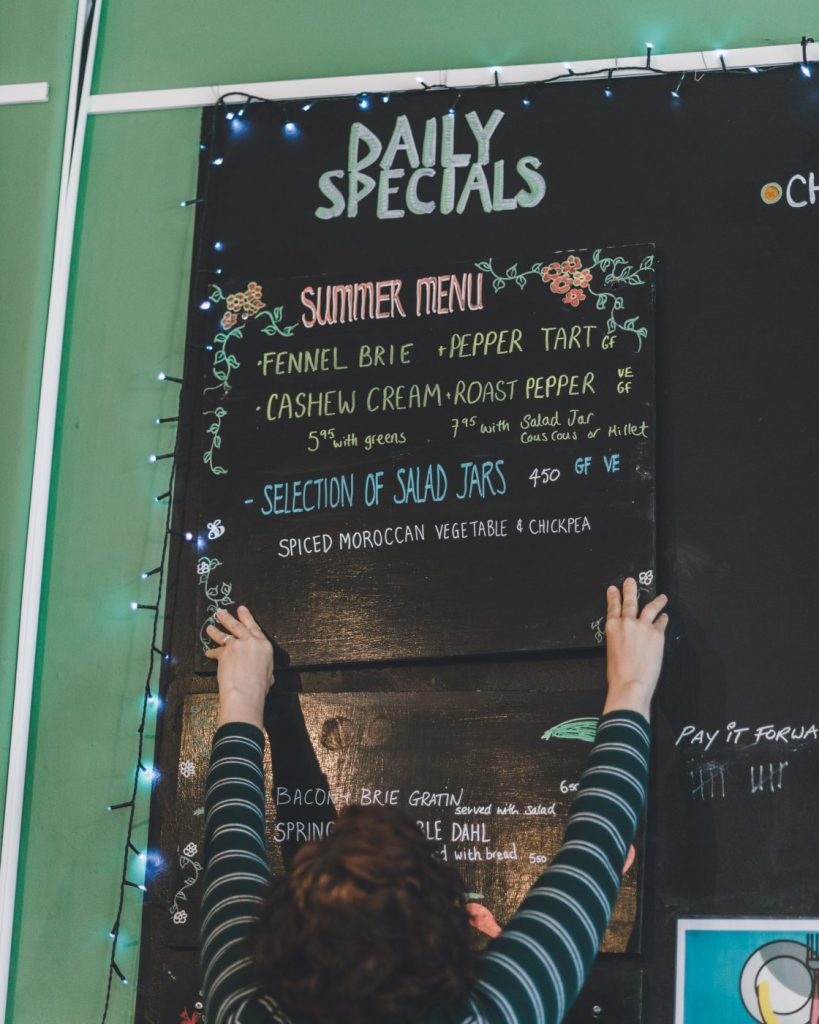 DAILY
SPECIALS
CH
SUMMER MENU
·FENNEL BRIE + PEPPER TART GF
·CASHEW CREAM + ROAST PEPPER VE GF
5.95 with greens 7.95 with Salad Jar
Couscous or Millet
- SELECTION OF SALAD JARS 450 GF VE
SPICED MOROCCAN VEGETABLE & CHICKPEA
PAY IT FORWA
BACON + BRIE GRATIN 650
served with salad
SPRING BLE DAHL
d with bread 550